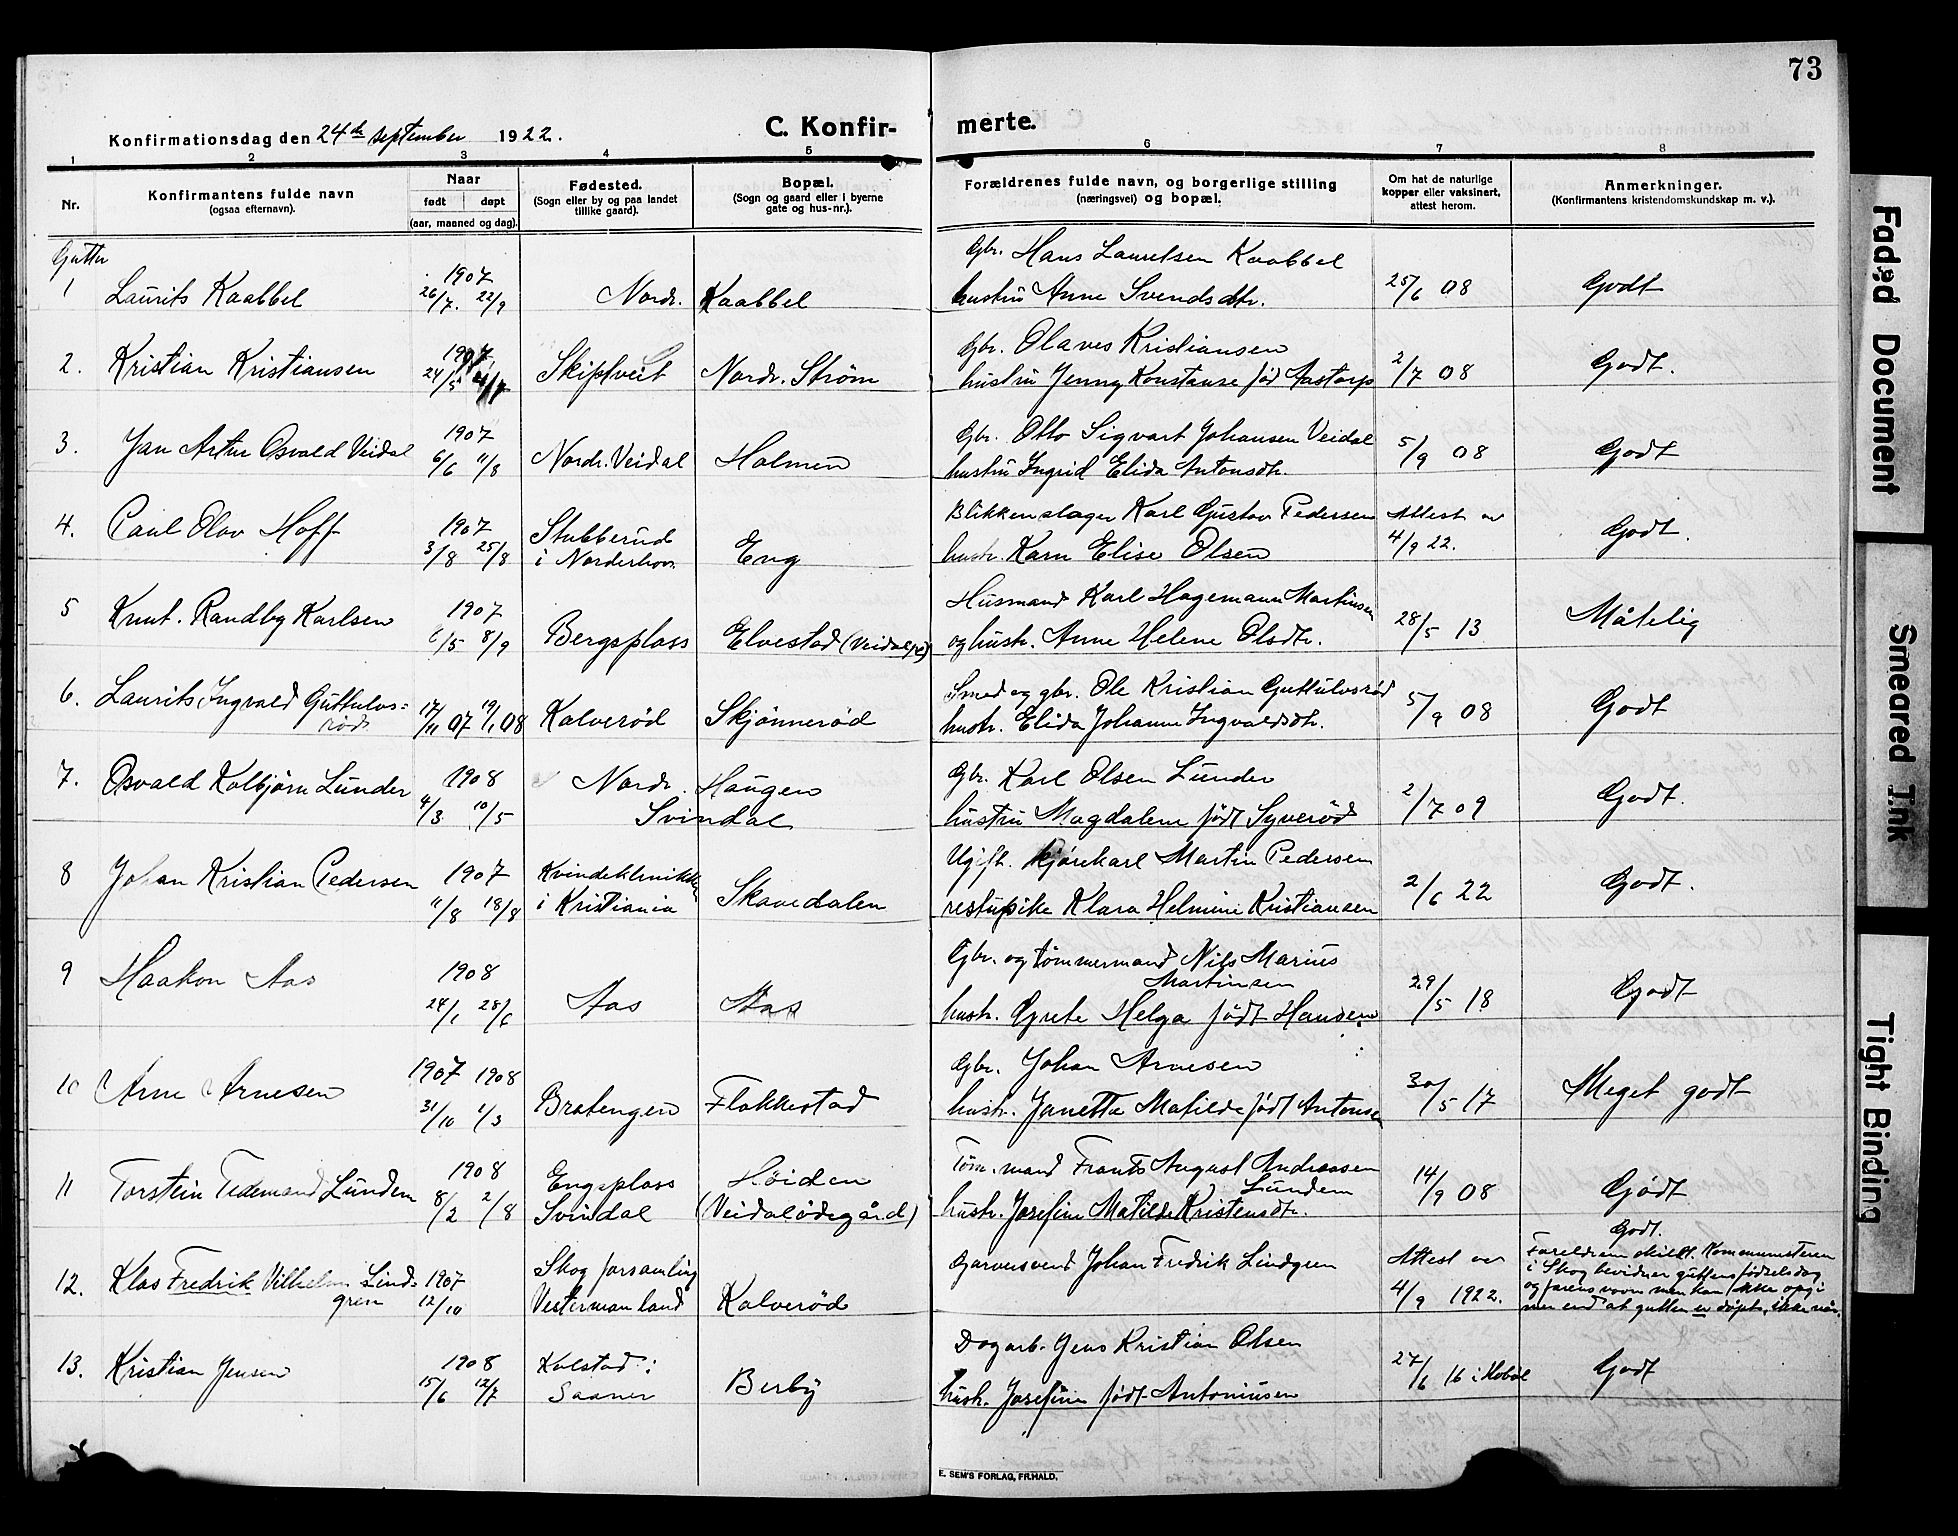 73
Konfirmationsdag den 24de september 1922.
C. Konfir-
merte.
1 2 3 4 5 6 7 8
Nr.
Konfirmantens fulde navn
(ogsaa efternavn).
Naar
født døpt
(aar, maaned og dag).
Fødested.
(Sogn eller by og paa landet
tillike gaard).
Bopæl.
(Sogn og gaard eller i byerne
gate og hus-nr.).
Forældrenes fulde navn, og borgerlige stilling
(næringsvei) og bopæl.
Om hat de naturlige
kopper eller vaksinert,
attest herom.
Anmerkninger.
(Konfirmantens kristendomskundskap m. v.).
Gutter
1 Laurits Kaabbel 1907 26/7. 22/9 Nordr. Kaabbel
Gbr. Hans Lauritsen Kaabbel
hustru Anne Svendsdtr. 25/6 08 Godt
2. Kristian Kristiansen 1907 24/5 Skiptveit Nordr. Strøm
Gbr. Olaves Kristiansen
hustru Jenny Konstanse fød Aastorp 2/7 08 Godt.
3. Jan Artur Osvald Veidal 1907 6/6 11/8 Nordr. Veidal Holmen
Gbr. Otto Sigvart Johansen Veidal
hustru Ingrid Elida Antonsdtr. 5/9 08 Godt
4. Paul Olav Hoff 1907 3/8 25/8 Stubberud
i Norderhov. Eng
Blikkenslager Karl Gustav Pedersen Attest av
hustr. Karn Elise Olsen 4/9 22. Godt.
5 Knut. Randby Karlsen 1907 6/5 8/9 Bergsplass Elvestad (Veidal)
Husmand Karl Hagemann Martinsen
og hustr. Anne Helene Olsdtr. 28/5 13 Måtelig
6. Laurits Ingvald Guttulvs=
rød 17/11 07 19/1 08 Kalverød Skjønnerød
Smed og gbr. Ole Kristian Guttulvsrød
hustr. Elida Johanne Ingvaldsdtr. 5/9 08 Godt
7. Osvald Kolbjørn Lunder 1908 4/3 10/5 Nordr. Haugen
Svindal
Gbr. Karl Olsen Lunder
hustru Magdalene født Syverød 2/7 09 Godt.
8 Johan Kristian Pedersen 1907 11/8 18/8 Kvindeklinikken
i Kristiania Skavedalen
Ugift. kjørekarl Martin Pedersen
restupike Klara Helmine Kristiansen 2/6 22 Godt.
9 Haakon Aas 1908 24/1 28/6 Aas Aas
Gbr. og tømmermand Nils Marius
Martinsen
hustr. Grete Helga født Hansen 29/5 18 Godt
10 Arne Arnesen 1907 1908 31/10 1/3 Bratengen Flakkestad
Gbr. Johan Arnesen
hustr. Janetta Matilde født Antonsen 30/5 17 Meget godt
11 Torstein Tidemand Lundem 1908 8/2 2/8 Engsplass
Svindal Høiden
(Veidalødegård)
Tøm. mand Frants August Andreassen
Lundem
hustr. Josefine Matilde Kristensdtr. 14/9 08 Godt
12. Klas Fredrik Vilhelm Lind-
gren 1907 12/10 Skog forsamling
Vestermanland Kalverød
Garversvend Johan Fredrik Lindgren Attest av
4/9 1922.
Godt.
Foreldrene skillt. Komministeren
i Skog bevidner guttens fødselsdag
og farens navn men kan ikke opgi
mer end at gutten er døpt, ikke når.
13. Kristian Jensen 1908 15/6 12/7 Kolstad i
Saaner Berby
Dagarb. Jens Kristian Olsen
hustr. Josefine født Antoniusen 27/6 16 i Hobøl Godt
E. SEM'S FORLAG, FR.HALD.
Faded Document
Smeared Ink
Tight Binding